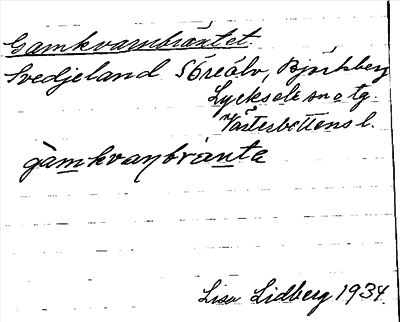 Gamkvarnbräntet
Svedjeland S Öreälv, Björkberg
Lycksele sn o tg
Västerbottens l.
gàmkvaɳbrànta
Lisa Lidberg 1934.